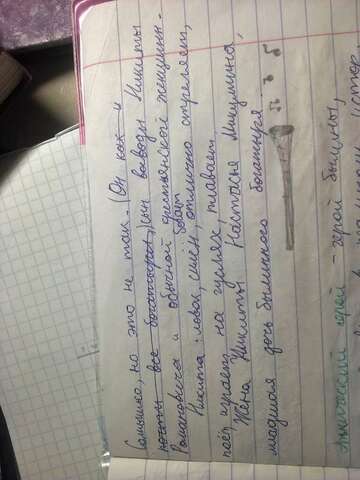 Солнышко, но это не так. (Он как и
почти все богатыри,) сын воеводы Никиты
Романовича и обычной крестьянской женщины.
бояр
Никита: ловок, силён, отлично стреляет,
поёт, играет на гуслях, плавает.
Жена Никиты Настасья Микулишна,
младшая дочь былинного богатыря
Эпический герой - герой былины,